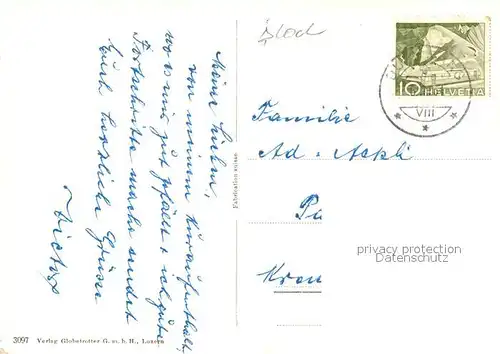 Meine Lieben,
von meinem Kuraufenthalt,
wo es mir gut gefällt & ich gute
Fortschritte mache sendet
Euch herzliche Grüsse
3097 Verlag Globetrotter G.m.b.H., Luzern
Fabrication suisse
10 HELVETIA
VIII
Familie
Ad. Aepli
Kron
privacy protection
Datenschutz